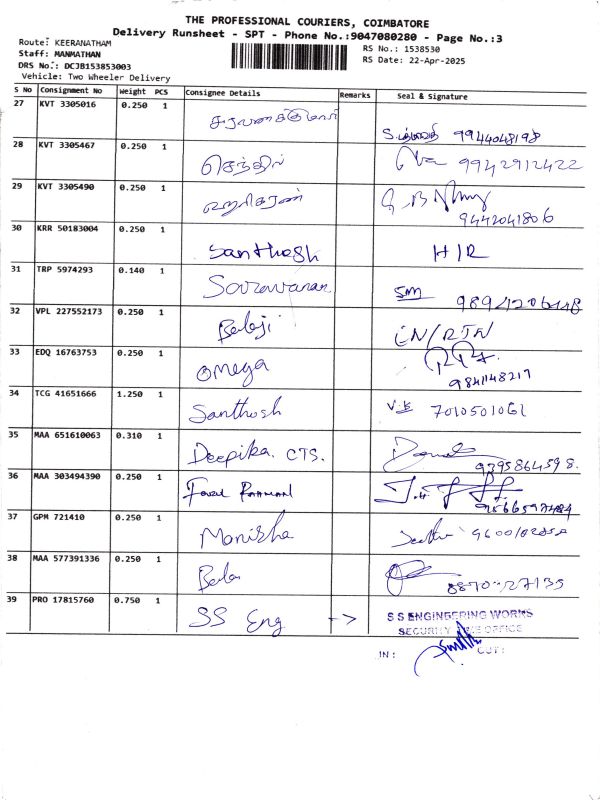 THE PROFESSIONAL COURIERS, COIMBATORE
Delivery Runsheet - SPT - Phone No.:9047080280 - Page No.:3
Route: KEERANATHAM
RS No.: 1538530
Staff: MANMATHAN
RS Date: 22-Apr-2025
DRS No.: DCJB153853003
Vehicle: Two Wheeler Delivery
S No Consignment No Weight PCS Consignee Details Remarks Seal & Signature
27 KVT 3305016 0.250 1
சரவணக்குமார்
9944048198
28 KVT 3305467 0.250 1
செந்தில் 9942912422
29 KVT 3305490 0.250 1
ஹரிகரன்
9442041806
30 KRR 50183004 0.250 1
Santhosh H/R
31 TRP 5974293 0.140 1
Saravanan SM
32 VPL 227552173 0.250 1
Balaji
33 EDQ 16763753 0.250 1
Omega
9841148217
34 TCG 41651666 1.250 1
Santhosh V.K 7010501061
35 MAA 651610063 0.310 1
Deepika. CTS.
9395864598.
36 MAA 303494390 0.250 1
37 GPM 721410 0.250 1
Manisha
38 MAA 577391336 0.250 1
Bala
39 PRO 17815760 0.750 1
SS Eng -> S S ENGINEERING WORKS
SECURITY OFFICE
IN: OUT: